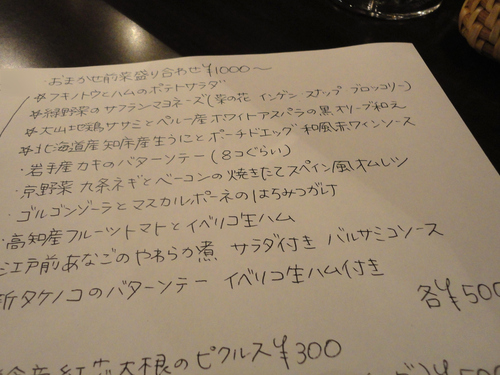 ・おまかせ前菜盛り合わせ¥1000〜
☆フキノトウとハムのポテトサラダ
☆緑野菜のサフランマヨネーズ(菜の花 インゲン スナップ ブロッコリー)
☆大山地鶏ササミとペルー産ホワイトアスパラの黒オリーブ和え
☆北海道産知床産生うにとポーチドエッグ 和風赤ワインソース
・岩手産カキのバターソテー(8コぐらい)
・京野菜 九条ネギとベーコンの焼きたてスペイン風オムレツ
・ゴルゴンゾーラとマスカルポーネのはちみつがけ
・高知産フルーツトマトとイベリコ生ハム
江戸前あなごのやわらか煮 サラダ付き バルサミコソース
新タケノコのバターソテー イベリコ生ハム付き
各¥500
産紅芯大根のピクルス¥300